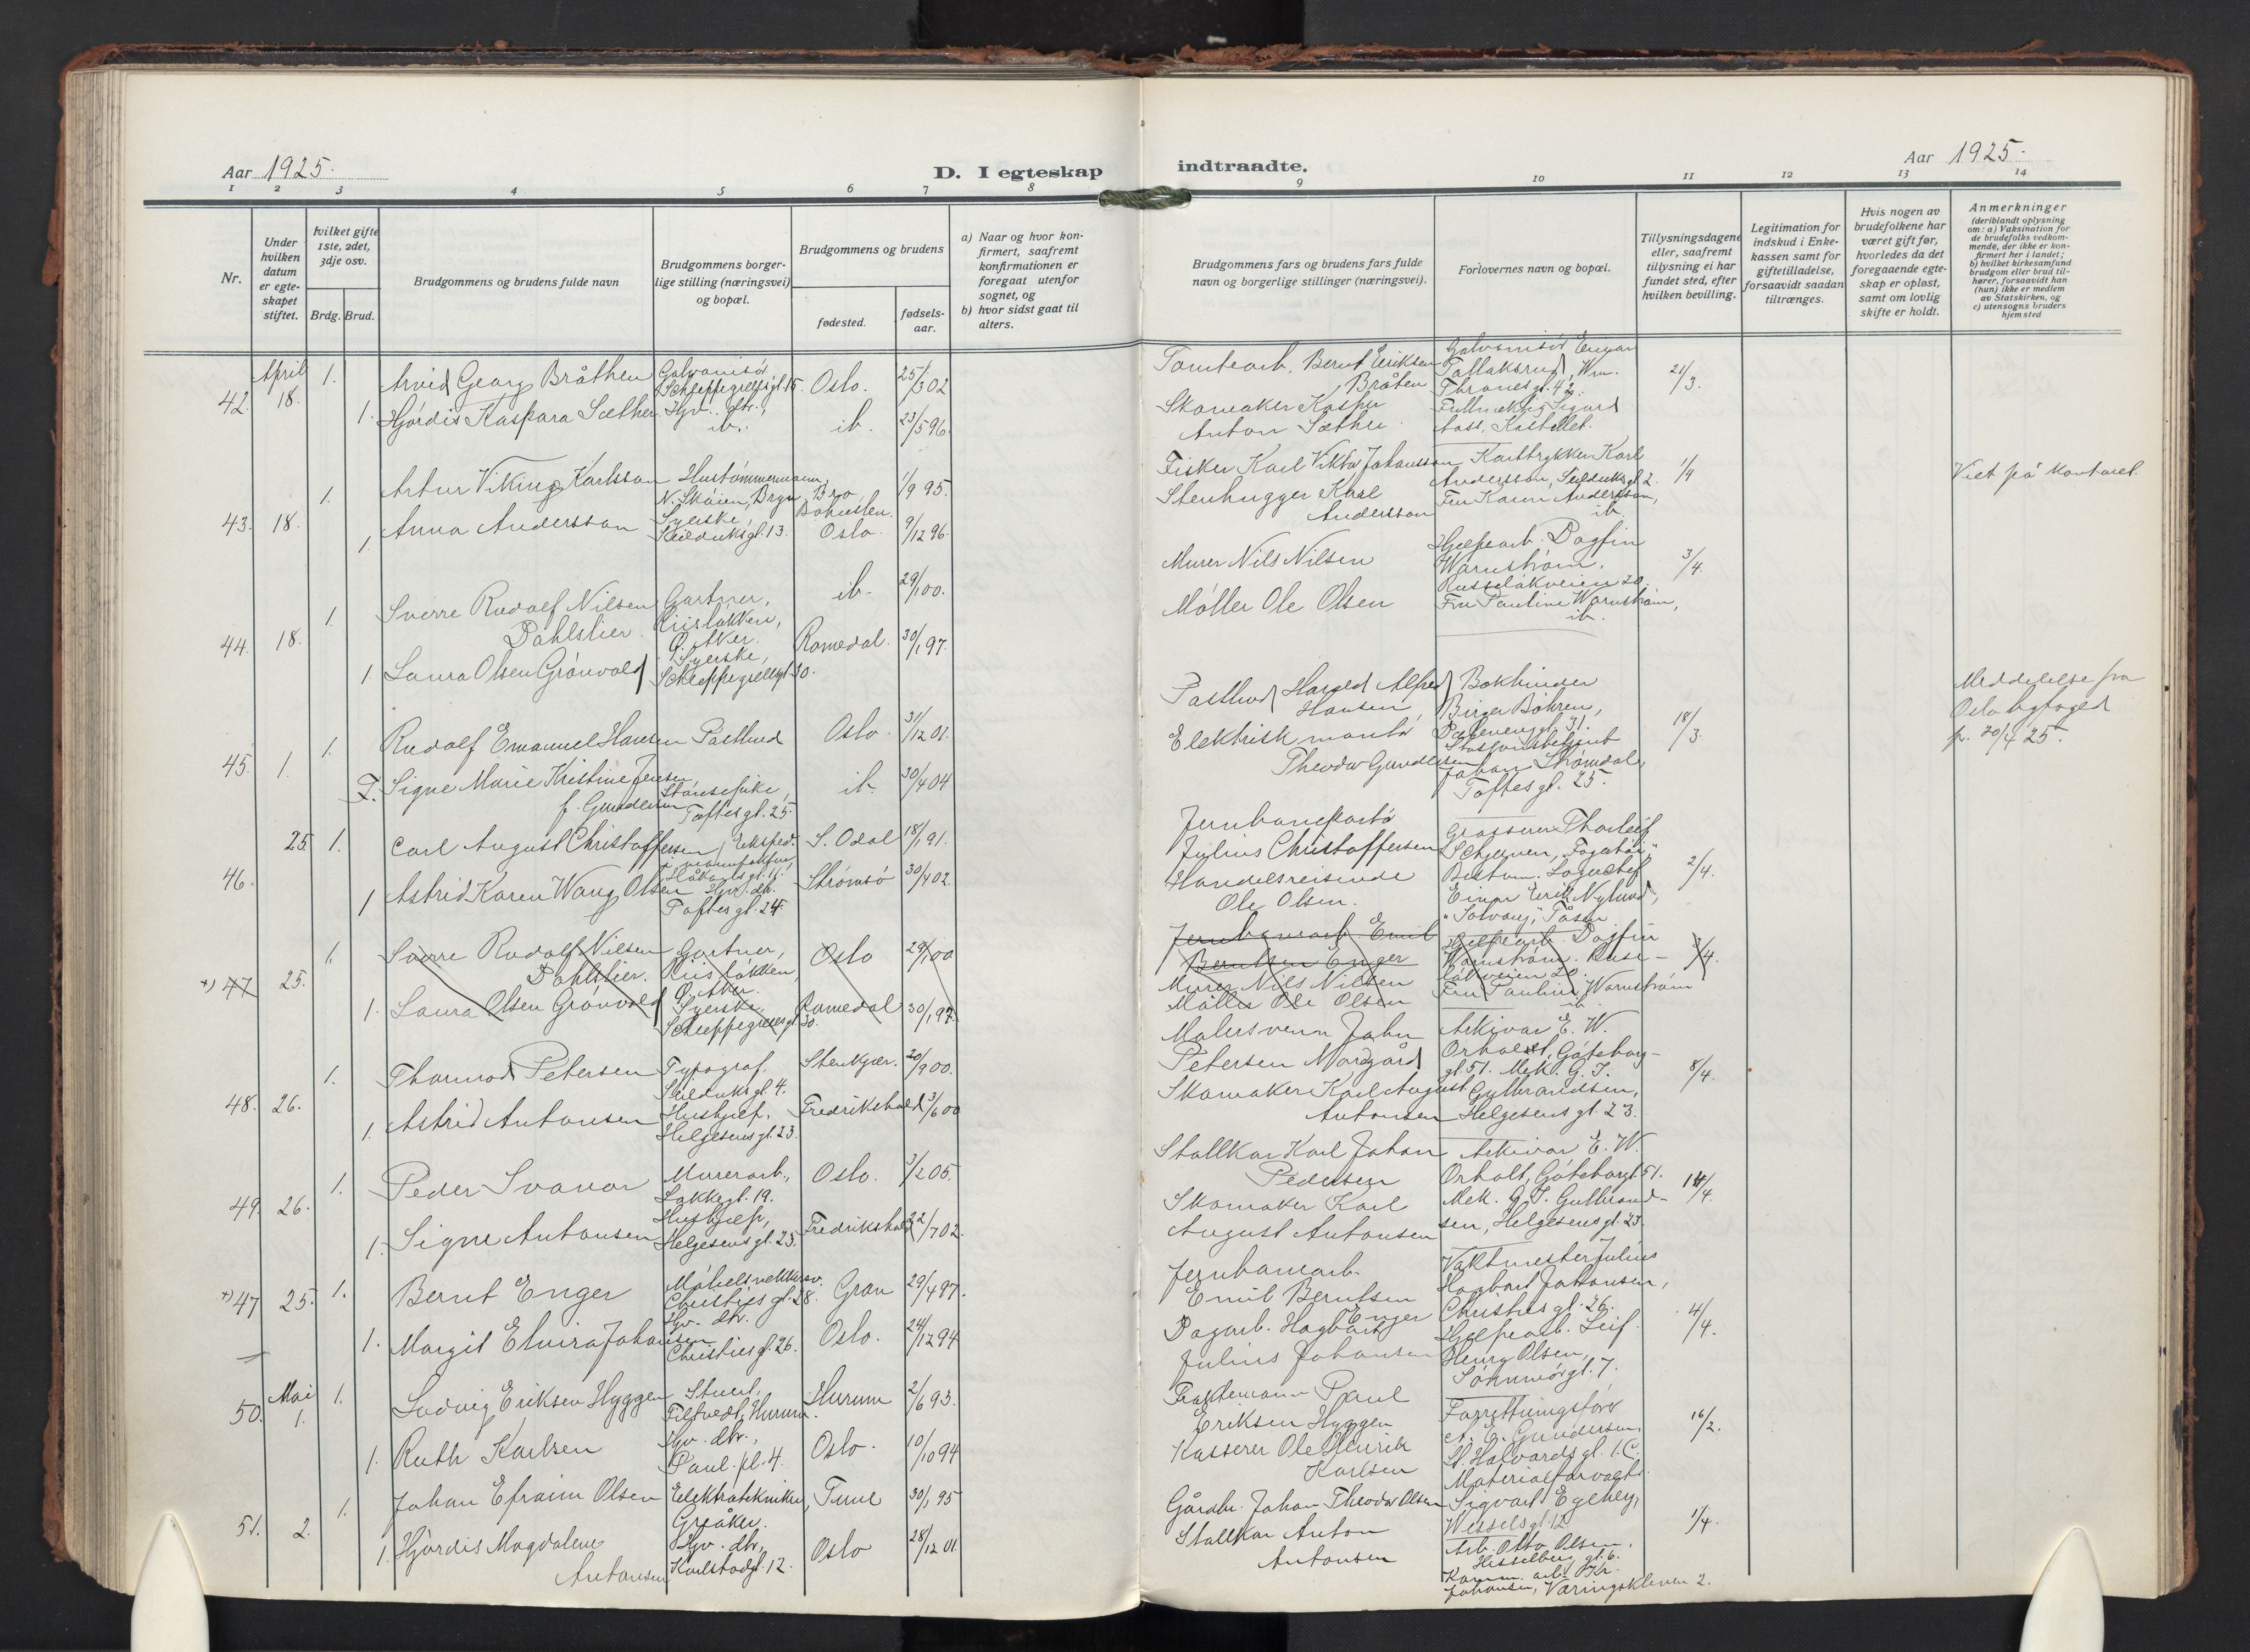 Aar 1925.
D. I egteskap
indtraadte.
Aar 1925.
1 2 3 4 5 6 7 8 9 10 11 12 13 14
Nr.
Under hvilken datum er egteskapet stiftet.
hvilket gifte 1ste, 2det, 3dje osv.
Brdg. Brud.
Brudgommens og brudens fulde navn
Brudgommens borgerlige stilling (næringsvei) og bopæl.
Brudgommens og brudens
fødested.
fødselsaar.
a) Naar og hvor konfirmert, saafremt konfirmationen er foregaat utenfor sognet, og
b) hvor sidst gaat til alters.
Brudgommens fars og brudens fars fulde navn og borgerlige stillinger (næringsvei).
Forlovernes navn og bopæl.
Tillysningsdagene eller, saafremt tillysning ei har fundet sted, efter hvilken bevilling.
Legitimation for indskud i Enkekassen samt for giftetilladelse, forsaavidt saadan tiltrænges.
Hvis nogen av brudefolkene har været gift før, hvorledes da det foregaaende egteskap er opløst, samt om lovlig skifte er holdt.
Anmerkninger
(deriblandt oplysning om: a) Vaksination for de brudefolks vedkommende, der ikke er konfirmert her i landet; b) hvilket kirkesamfund brudgom eller brud tilhører, forsaavidt han (hun) ikke er medlem av Statskirken, og c) utensogns bruders hjemsted
42. April 18. 1. Arvid Georg Bråthen Galvanisør Schleppegrellsgt. 15. Oslo. 25/3 02
1. Hjørdis Kaspara Sæther Hjv. dtr., ib. ib. 23/5 96.
Tomtearb. Bernt Eriksen Bråten
Skomaker Kasper Anton Sæther.
Galvanisør Einar Tollaksrud, Wm. Thranesgt. 42
Fullmektig Sigurd Aass, Kastellet.
21/3.
43. 18. 1. Artur Viking Karlsson Hustømmermann, N. Skøien, Bryn Bro, Bohuslen. 1/9 95.
1. Anna Andersson Syerske, Seilduksgt. 13. Oslo. 9/12 96.
Fisker Karl Viktor Johansson
Stenhugger Karl Andersson
Korttrykker Karl Andersson, Seilduksgt. 2.
Fru Karen Andersson, ib.
1/4
Viet på kontoret
44. 18. 1. Sverre Rudolf Nilsen Dahlslier. Gartner, Risløkken, Ø. Aker. ib. 29/1 00.
1. Laura Olsen Grønvold Syerske, Schleppegrellsgt. 30. Romedal. 30/1 97.
Murer Nils Nilsen
Møller Ole Olsen
Hjelpearb. Dagfin Warnstrøm, Ruseløkveien 20.
Fru Pauline Warnstrøm, ib.
3/4.
45. 1. 1. Rudolf Emanuel Hansen Postbud Oslo. 31/12 01.
2. Signe Marie Kristine Jensen f. Gundersen Toftesgt. 25. ib. 30/4 04
Postbud Harald Alfred Hansen
Elektrisk montør Theodor Gundersen
Bokbinder Birger Bøhren, 31.
Stasjonsbetjent Johan Strømdal, Toftesgt. 25.
18/3.
Meddelelse fra Oslo byfoged pr. 20/4 25.
46. 25. 1. Carl August Christoffersen Eksped. i manufaktur, S. Odal 18/1 91.
1 Astrid Karen Wang Olsen Hjv. dtr. Toftesgt. 24 Strømsø 30/4 02.
Jernbaneportør Julius Christoffersen
Handelsreisende Ole Olsen.
Grosserer Thorleif Bestum. Lagerchef Einar Erik Nylund, "Solvang", Tåsen
2/4.
x) 47 25. 1. Sverre Rudolf Nilsen Dahlslier. Gartner, Risløkken, Ø. Aker. Oslo 29/1 00
1. Laura Olsen Grønvold Syerske, Schleppegrellsgt. 30. Romedal 30/1 97.
Jernbanearb. Emil Berntsen Enger
Murer Nils Nilsen
Møller Ole Olsen
Hjelpearb. Dagfin Warnstrøm. Ruseløkveien 20.
Fru Pauline Warnstrøm ib.
3/4.
48. 26. 1. Thormod Petersen Typograf. Seilduksgt. 4. Stenkjær. 20/9 00.
1. Astrid Antonsen Hushjelp, Helgesensgt. 23. Fredrikshald 3/6 00
Malersvenn John Petersen Nordgård
Skomaker Karl August Antonsen
Arkivar E. W. Orholt, Gøteborggt. 51. Mek. G. J. Gulbrandsen, Helgesensgt. 23.
8/4.
49. 26. 1. Peder Svanor Murerarb., Lakkegt. 19. Oslo. 3/2 05.
1. Signe Antonsen Hushjelp, Helgesensgt. 23. Fredrikshald 22/7 02.
Stallkar Karl Johan Pedersen
Skomaker Karl August Antonsen
Arkivar E. W. Orholt, Gøteborggt. 51.
Mek. G. J. Gulbrandsen, Helgesensgt. 23.
14/4.
x) 47 25. 1. Bernt Enger Møbelsnekkersv. Christiesgt. 28. Gran 29/4 97.
1. Margit Elvira Johansen Hjv. dtr. Christiesgt. 26. Oslo. 24/12 94
Jernbanearb. Emil Berntsen Enger
Dagarb. Hagbart Julius Johansen
Vaktmester Julius Hagbart Johansen, Christiesgt. 26.
Hjelpearb. Leif Henry Olsen, Sørumsgt. 7.
4/4.
50. Mai 1. 1. Ludvig Eriksen Hyggen Stuert. Filtvedt, Hurum. Hurum 2/6 93.
1. Ruth Karlsen Hjv. dtr., Paul. pl. 4. Oslo. 10/10 94
Fraktemann Paul Eriksen Hyggen
Kasserer Ole Henrik Karlsen
Forretningsfører A. E. Gundersen, St. Halvardsgt. 1.C.
16/2.
51. 2. 1. Johan Efraim Olsen Elektrotekniker, Greåker. Tune 30/1 95
1. Hjørdis Magdalene Antonsen Hjv. dtr., Karlstadgt. 12. Oslo 28/12 01.
Gårdbr. Johan Theodor Olsen
Stallkar Anton Antonsen
Materialforvalter Sigvart Egeberg, Wesselsgt. 12.
Arb. Otto Olsen, Hesselberg gt. 6.
Komm. arb. Johansen, Væringskleven 2.
1/4.